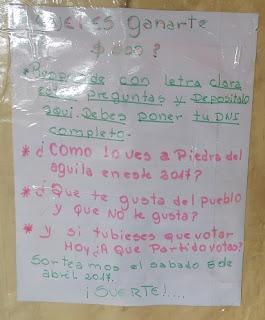 Ganarte
$ 500 ?
* Responde con letra clara
estas preguntas y Depositalo
aqui. Debes poner tu DNI
completo.
* ¿Como lo ves a Piedra del
aguila en este 2017?
* ¿Que te gusta del pueblo
y que NO te gusta?
* y si tubieses que votar
Hoy ¿A que Partido votas?
Sorteamos el sabado 8 de
abril 2017.
¡SUERTE!....